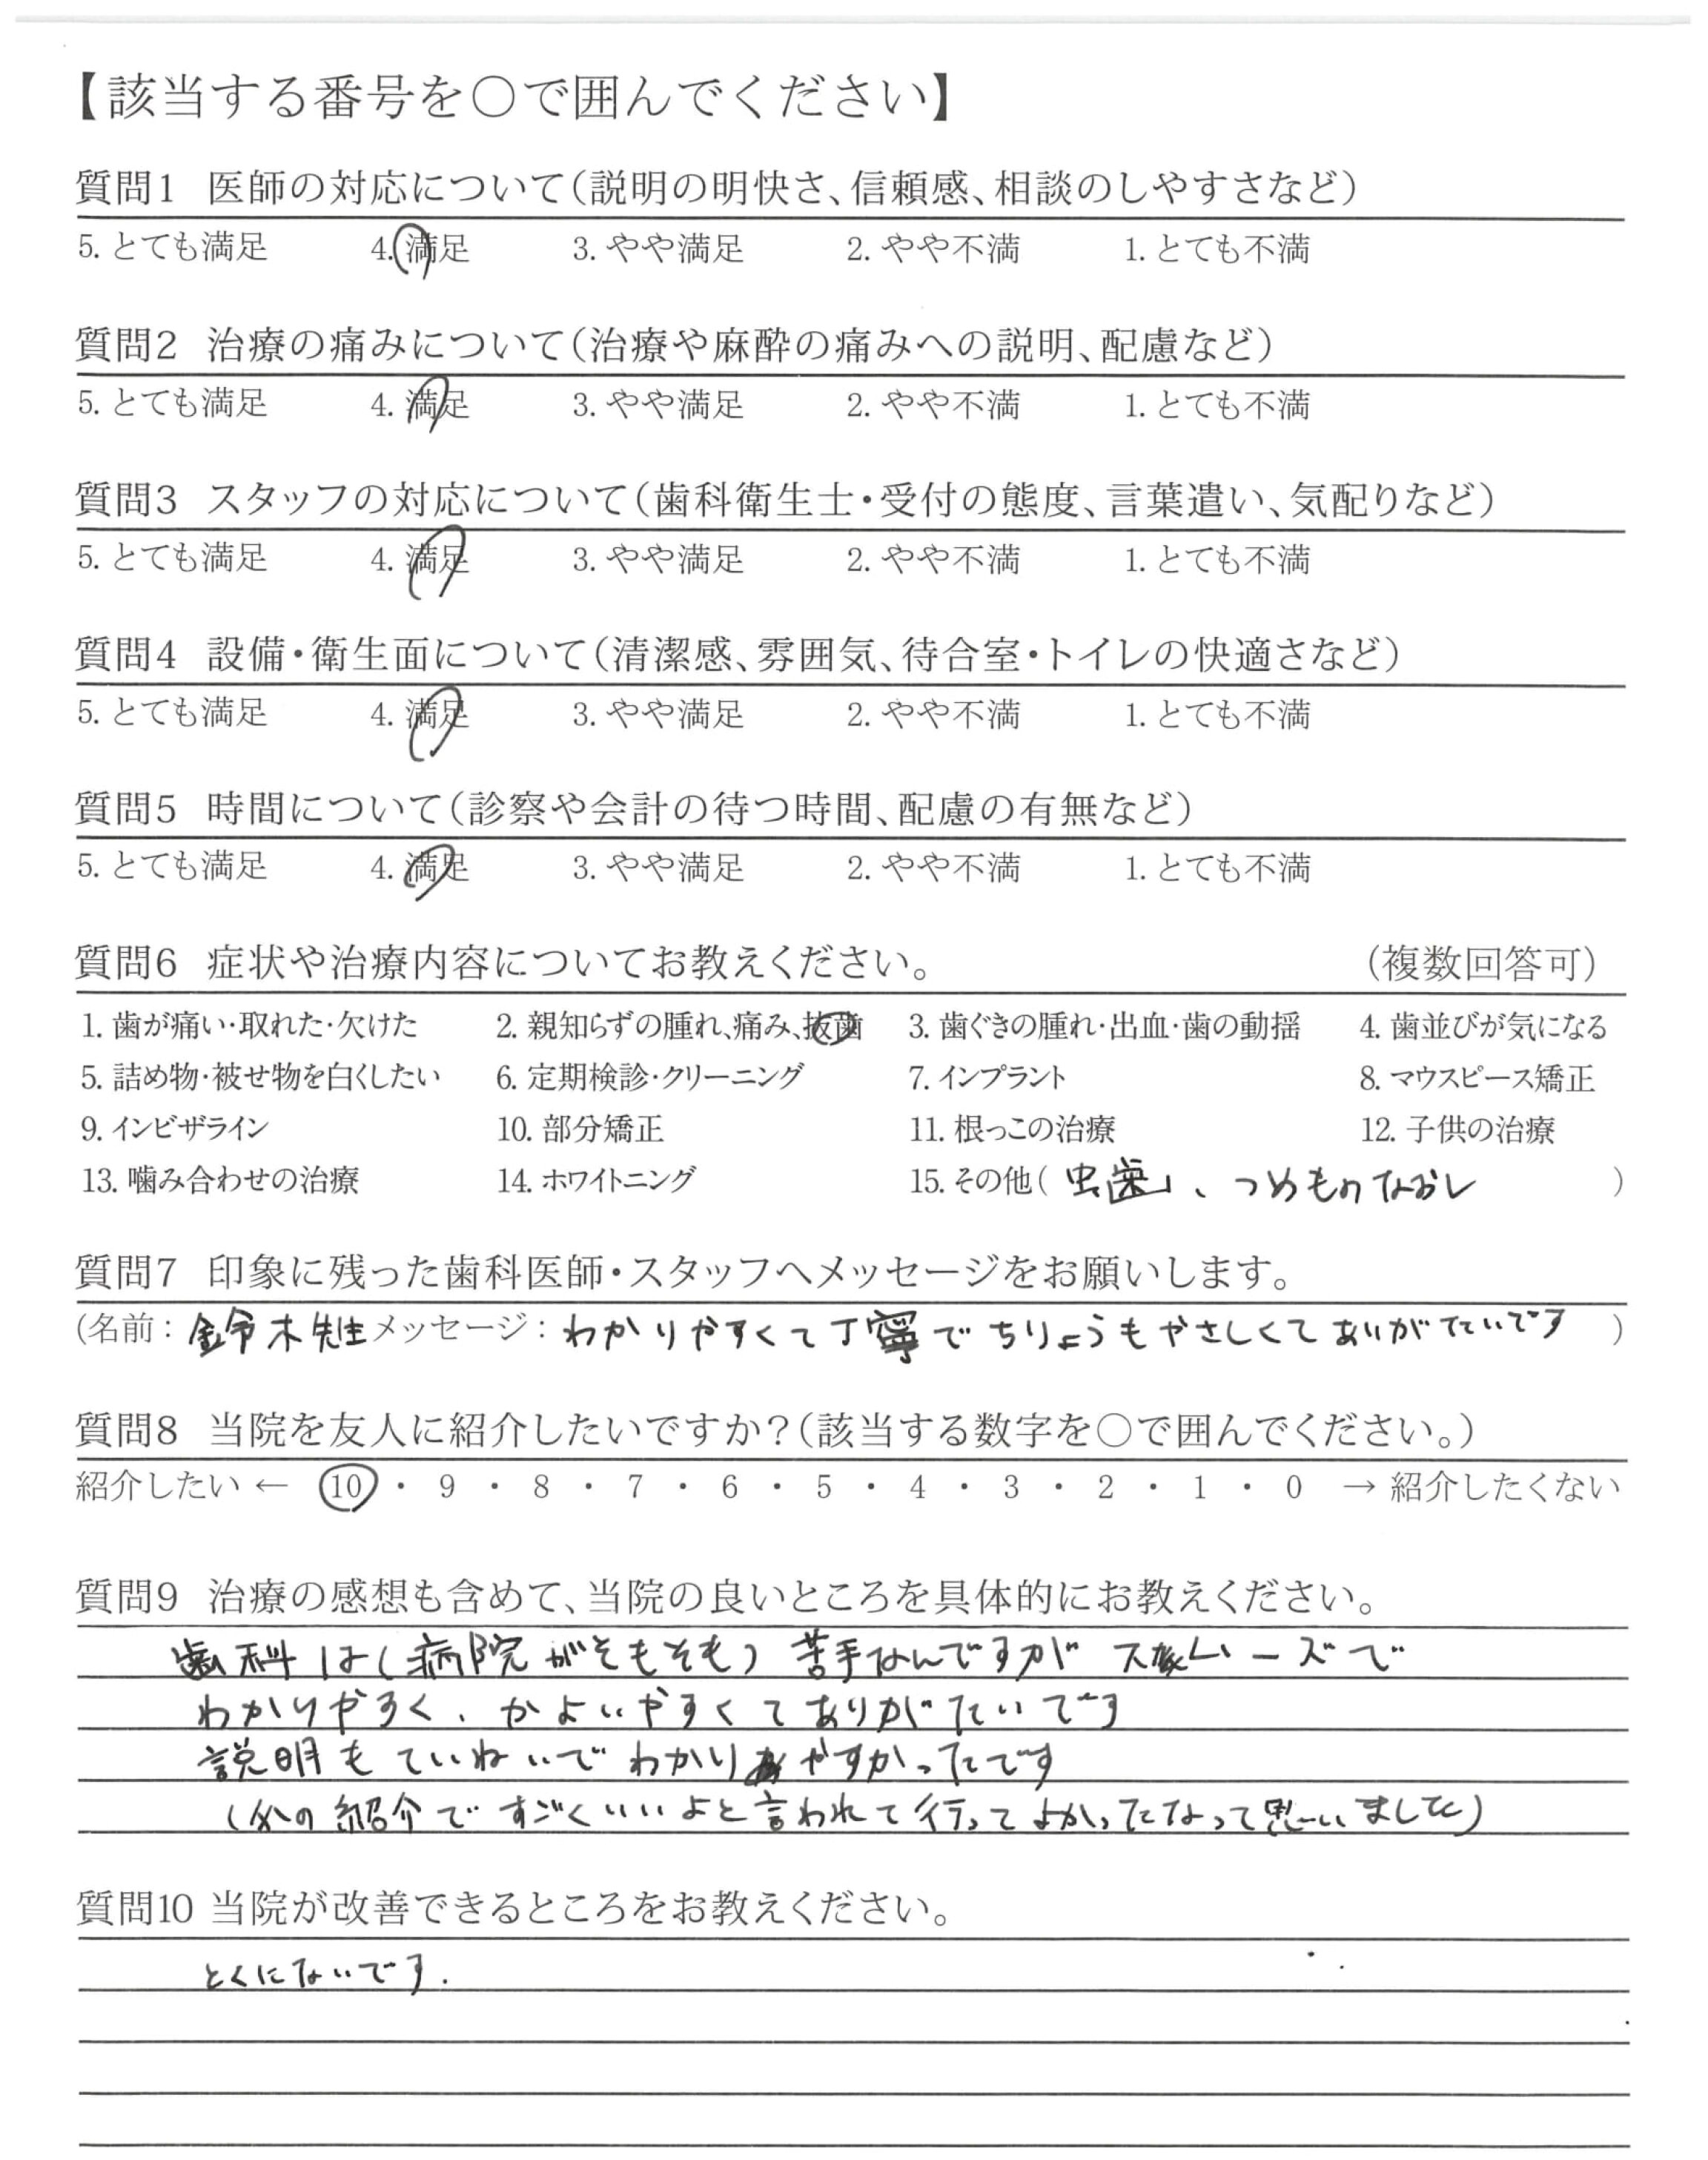 【該当する番号を〇で囲んでください】
質問1 医師の対応について(説明の明快さ、信頼感、相談のしやすさなど)
5. とても満足 4. 満足 3. やや満足 2. やや不満 1. とても不満
質問2 治療の痛みについて(治療や麻酔の痛みへの説明、配慮など)
5. とても満足 4. 満足 3. やや満足 2. やや不満 1. とても不満
質問3 スタッフの対応について(歯科衛生士・受付の態度、言葉遣い、気配りなど)
5. とても満足 4. 満足 3. やや満足 2. やや不満 1. とても不満
質問4 設備・衛生面について(清潔感、雰囲気、待合室・トイレの快適さなど)
5. とても満足 4. 満足 3. やや満足 2. やや不満 1. とても不満
質問5 時間について(診察や会計の待つ時間、配慮の有無など)
5. とても満足 4. 満足 3. やや満足 2. やや不満 1. とても不満
質問6 症状や治療内容についてお教えください。 (複数回答可)
1. 歯が痛い・取れた・欠けた 2. 親知らずの腫れ、痛み、抜歯 3. 歯ぐきの腫れ・出血・歯の動揺 4. 歯並びが気になる
5. 詰め物・被せ物を白くしたい 6. 定期検診・クリーニング 7. インプラント 8. マウスピース矯正
9. インビザライン 10. 部分矯正 11. 根っこの治療 12. 子供の治療
13. 噛み合わせの治療 14. ホワイトニング 15. その他( 虫歯、つめものなおし )
質問7 印象に残った歯科医師・スタッフへメッセージをお願いします。
(名前: 鈴木先生 メッセージ: わかりやすくて丁寧でちりょうもやさしくてありがたいです )
質問8 当院を友人に紹介したいですか?(該当する数字を〇で囲んでください。)
紹介したい ← 10 ・ 9 ・ 8 ・ 7 ・ 6 ・ 5 ・ 4 ・ 3 ・ 2 ・ 1 ・ 0 → 紹介したくない
質問9 治療の感想も含めて、当院の良いところを具体的にお教えください。
歯科は(病院がそもそも)苦手なんですが スムーズで
わかりやすく、かよいやすくてありがたいです
説明もていねいでわかりやすかったです
の紹介ですごくいいよと言われて行ってよかったなって思いました)
質問10 当院が改善できるところをお教えください。
とくにないです.